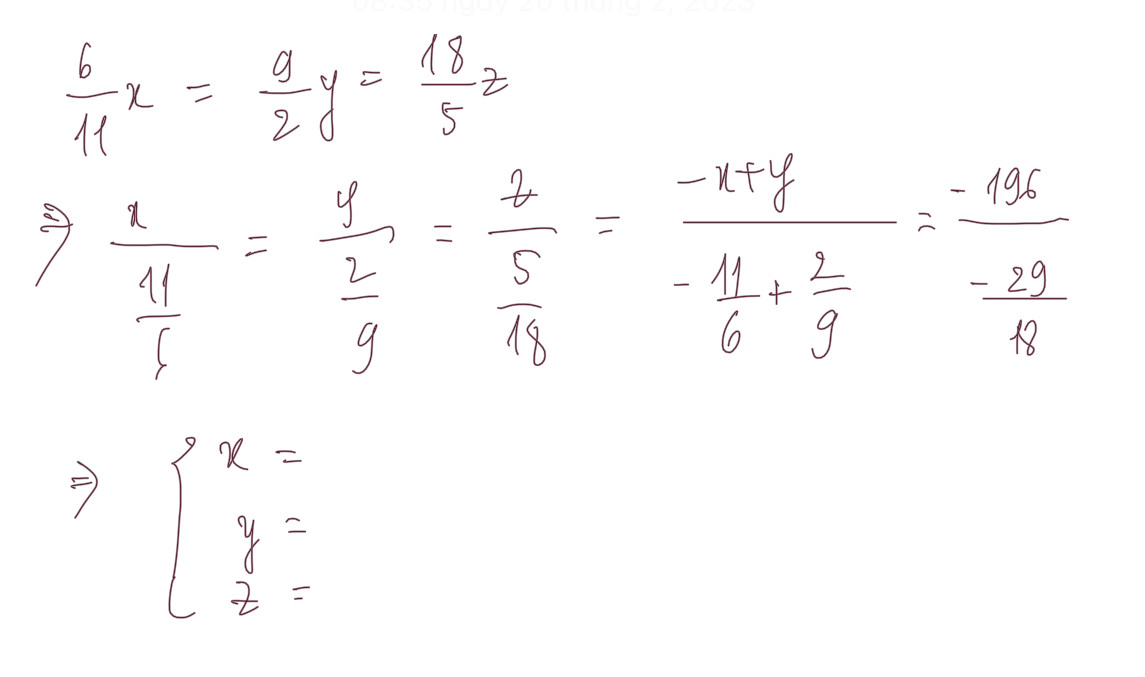 08:35 ngày 20 tháng 2, 2023
6/11 x = 9/2 y = 18/5 z
⇒ x/(11/6) = y/(2/9) = z/(5/18) = (-x+y)/(-11/6 + 2/9) = -196/(-29/18)
⇒ { x =
y =
z =